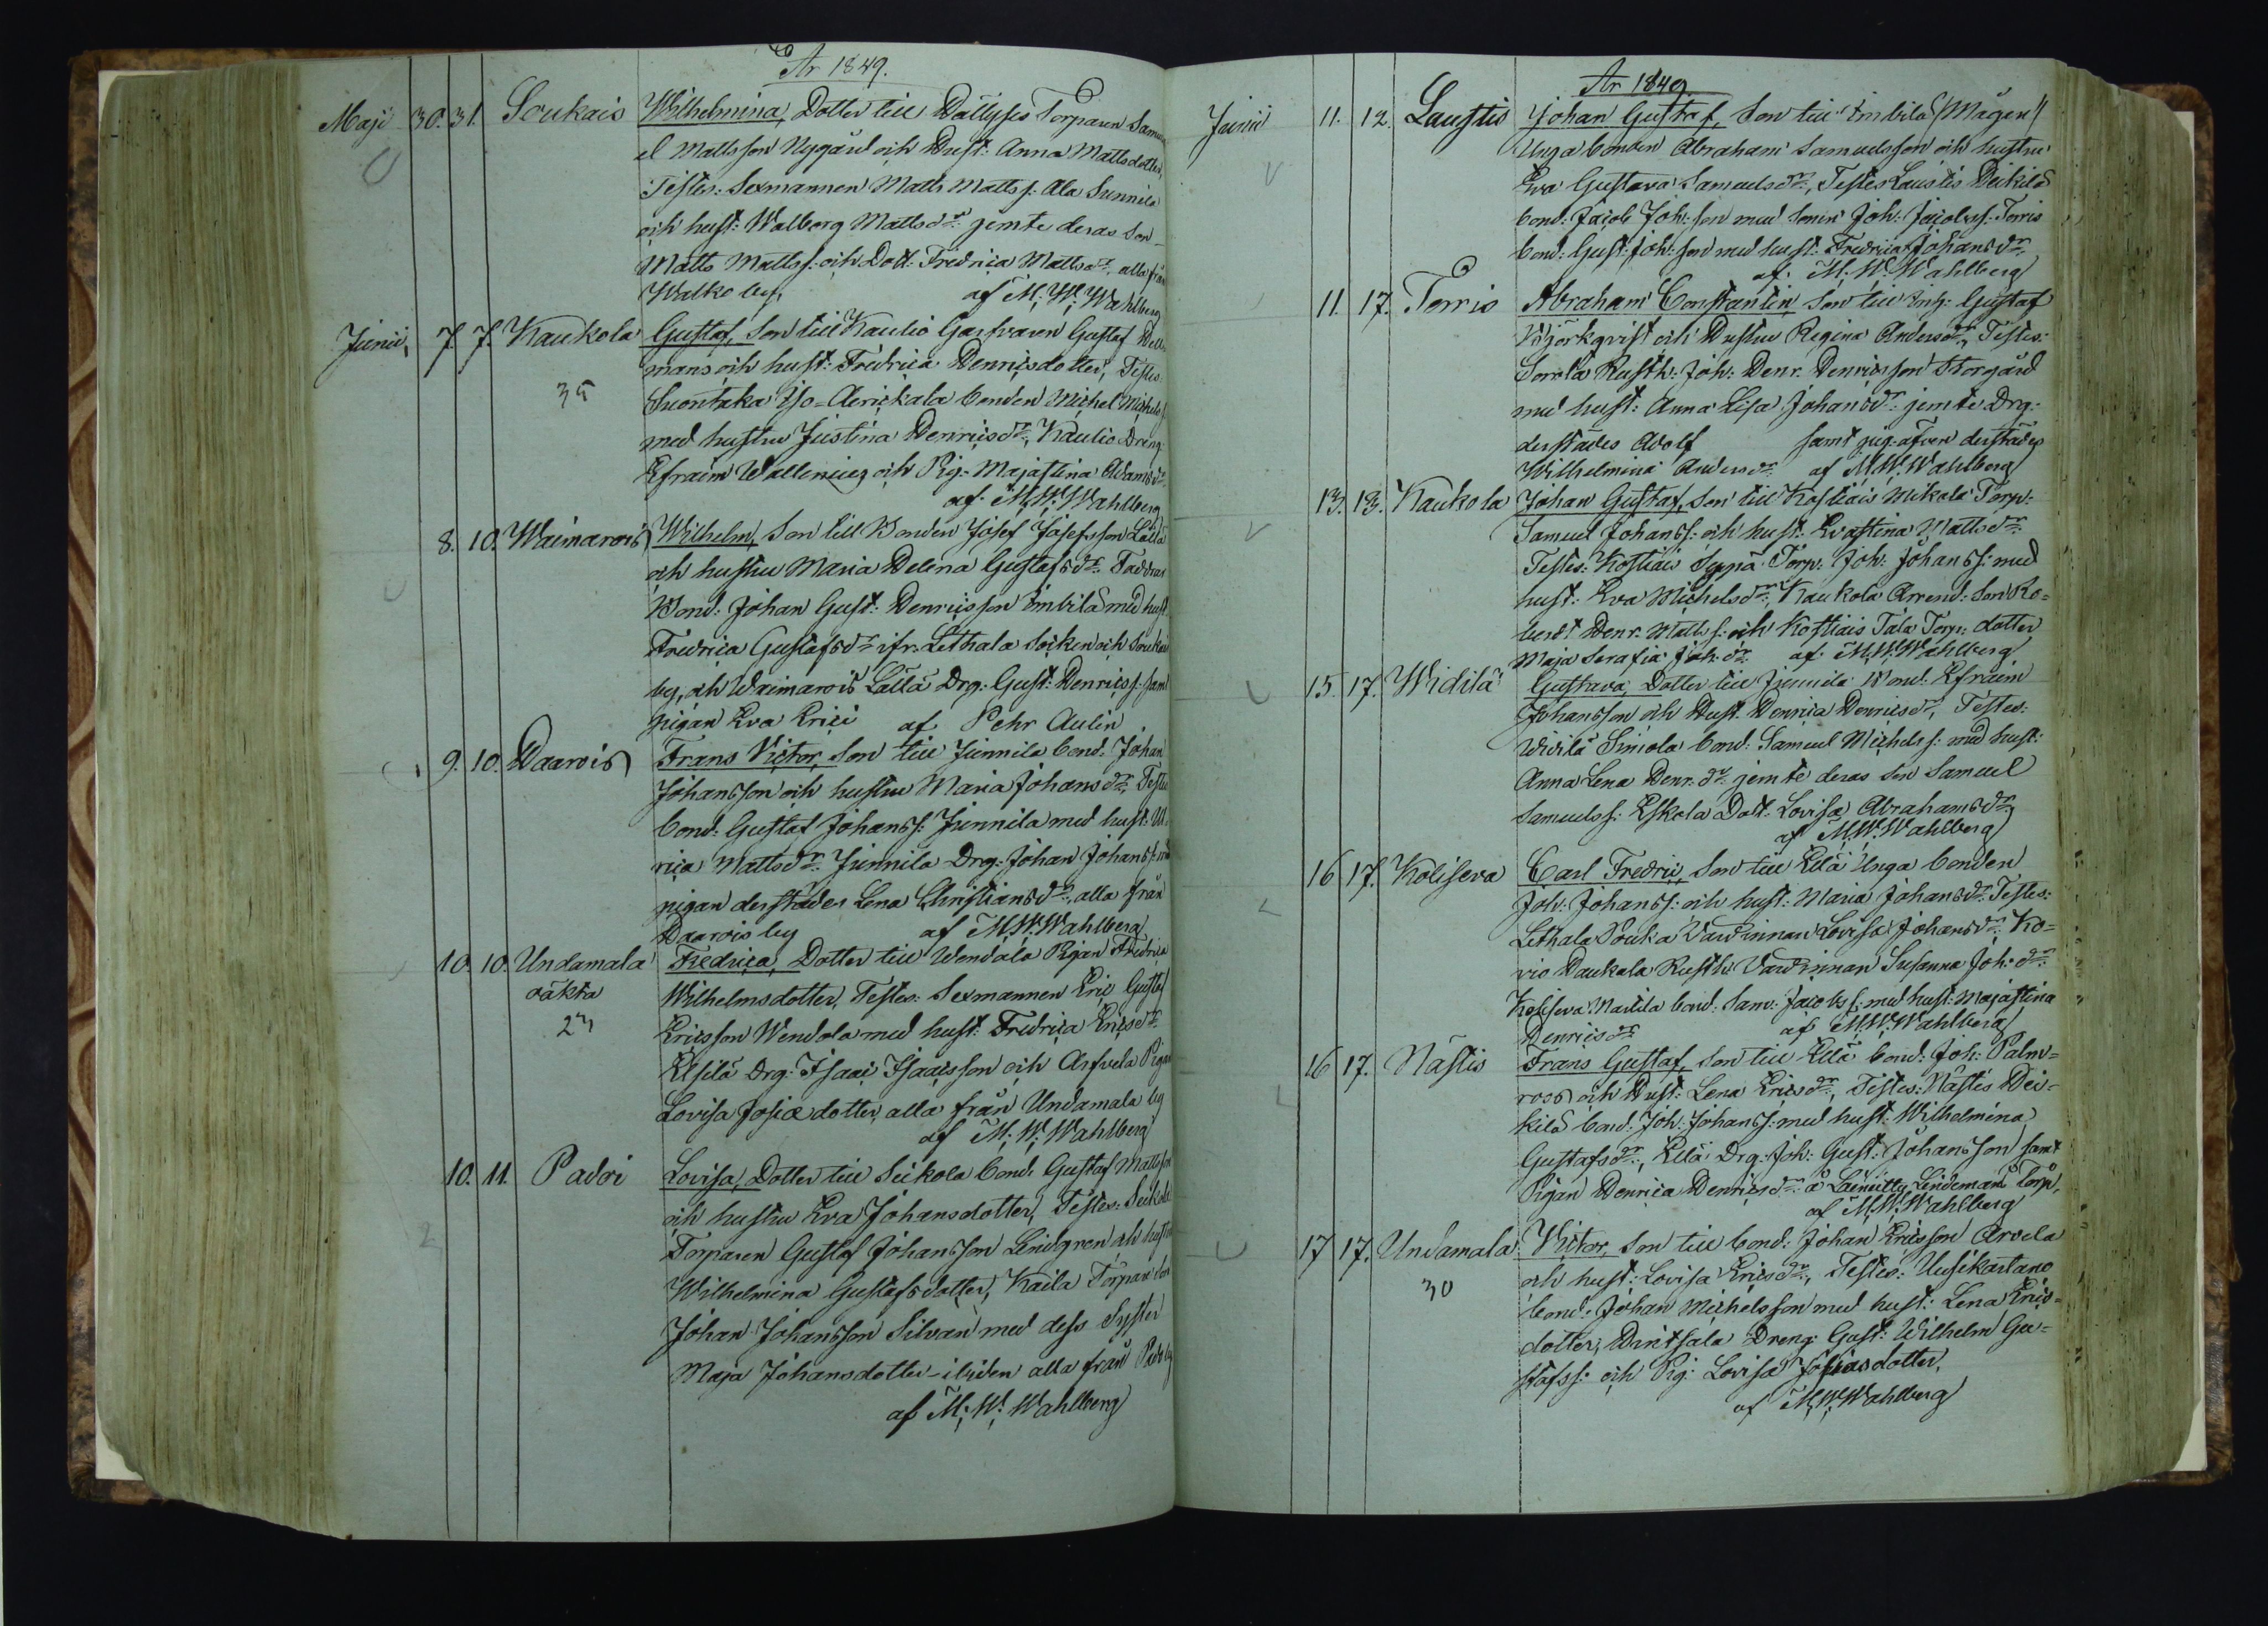 År 1849.
Maji 30. 31. Soukais Wilhelmina, Dotter till Dällyses Torparen Samu
el Mattsson Nygård och Hust: Anna Mattsdotter,
Testes: Sexmannen Matts Matts s: Ala Sunnila
och hust: Walborg Mattsdr: jemte deras Son
Matts Matts s: och Dott: Fredrica Mattsdr, alla från
Walko by, af M: W: Wahlberg
Junii, 7. 7. Kaukola Gustaf, Son till Kaulio Garfvaren Gustaf
mans och hust: Fredrica Henricsdotter, Testes
35 Suontaka Iso-Aerickala bonden Michel Michels
med hustru Justina Henricsdr, Kaulio Dreng
Efraim Wallenius och Pig: Majastina Adamsdr
af M: W: Wahlberg
8. 10. Waimarois Wilhelm, Son till Bonden Josef Josefsson Lälla
och hustru Maria Helena Gustafsdr: Faddrar
Bond: Johan Gust: Henricsson Imbila med hust
Fredrica Gustafsdr ifr: Lethala socken och Soukais
by, och Waimarois Lälla Drg: Gust: Henrics s: samt
pigan Eva Erici af Pehr Aulin
9. 10. Haarois Frans Victor, Son till Junnila bond: Johan
Johansson och hustru Maria Johansdr: Testes
bond: Gustaf Johans s: Junnila med hust: Ul
rica Mattsdr: Junnila Drg: Johan Johans s: med
pigan derstädes Lena Christiansdr, alla från
Haarois by af M: W: Wahlberg
10. 10. Undamala Fredrica, Dotter till Wendala Pigan Fredrica
oäkta Wilhelmsdotter, Testes: Sexmannen Eric Gustaf
23 Ericsson Wendola med hust: Fredrica Ericsdr
Elsilä Drg: Isaac Isaacsson och Arfvela Pigan
Lovisa Josiædotter, alla från Undamala by
af M: W: Wahlberg
10. 11. Padoi Lovisa, Dotter till Seikola bond: Gustaf Mattsson
och hustru Eva Johansdotter, Testes: Seikola
Torparen Gustaf Johansson Lindgren och hustru
Wilhelmina Gustafsdotter, Kaila Torpare Son
Johan Johansson Silvan med dess Syster
Maja Johansdotter ibiden alla från Pado by
af M: W: Wahlberg
År 1849.
Junii 11. 12. Laustis Johan Gustaf, Son till Imbila (Mågen)
Unga bonden Abraham Samuelsson och hustru
Eva Gustava Samuelsdr:, Testes Laustis Heikilä
bond: Jacob Joh: son med Sonen Joh: Jacobss: Torris
bond: Gust: Joh: son med hust: Fredrica Johansdr
af M: W: Wahlberg
11. 17. Torris Abraham Constantin, Son till Inh: Gustaf
Björkqvist och Hustru Regina Andersdr, Testes:
Sorrola Rusth: Joh: Henr: Henricsson Storgård
med hust: Anna Lisa Johansdr: jemte Drg:
derstädes Adolf samt pig: äfven derstädes
Wilhelmina Andersdr af M: W: Wahlberg
13. 13. Kaukola Johan Gustaf, Son till Kostiais Mikola Torp:
Samuel Johans s: och hust: Evastina Mattsdr
Testes: Kostiais Seppä Torp: Joh: Johans s: med
hust: Eva Michelsdr:, Kaukola Arrend: Son Ro=
bert Henr: Matts s: och Kostiais Tala Torp: dotter
Maja Serafia Joh: dr af M: W: Wahlberg
15. 17. Widilä Gustava, Dotter till Junnila Bond: Efraim
Johansson och Hust: Henrica Henricsdr, Testes:
Widilä Simola bond: Samuel Michels s: med hust:
Anna Lena Henr: dr: jemte deras Son Samuel
Samuels s: Eskola Dott: Lovisa Abrahamsdr
af M: W: Wahlberg
16 17. Koliseva Carl Fredric, Son till Eilä Unga bonden
Joh: Johans s: och hust: Maria Johansdr: Testes:
Lethala Pouka Vävinnan Lovisa Johansdr Ko=
vio Haukala Rusth: Värdinnan Susanna Joh: dr
Koliseva Martila bond: Sam: Jacobs s: med hust: Majastina
Henricsdr af M: W: Wahlberg
16 17. Nästis Frans Gustaf, Son till Eilä bond: Joh: Palm=
roos och Hust: Lena Ericsdr, Testes: Nästis Hei=
kilä bond: Joh: Johans s: med hust: Wilhelmina
Gustafsdr:, Eilä Drg: Joh: Gust: Johansson samt
Pigan Henrica Henricsdr: å Lindemans Torp,
af M: W: Wahlberg
17 17. Undamala Victor, Son till bond: Johan Ericsson Arvela
30 och hust: Lovisa Ericsdr, Testes: Uusikartano
bond: Johan Michelsson med hust: Lena Erics=
dotter, Hintsala Dreng: Gust: Wilhelm Gu=
stafss: och Pig: Lovisa Josiasdotter,
af M: W: Wahlberg